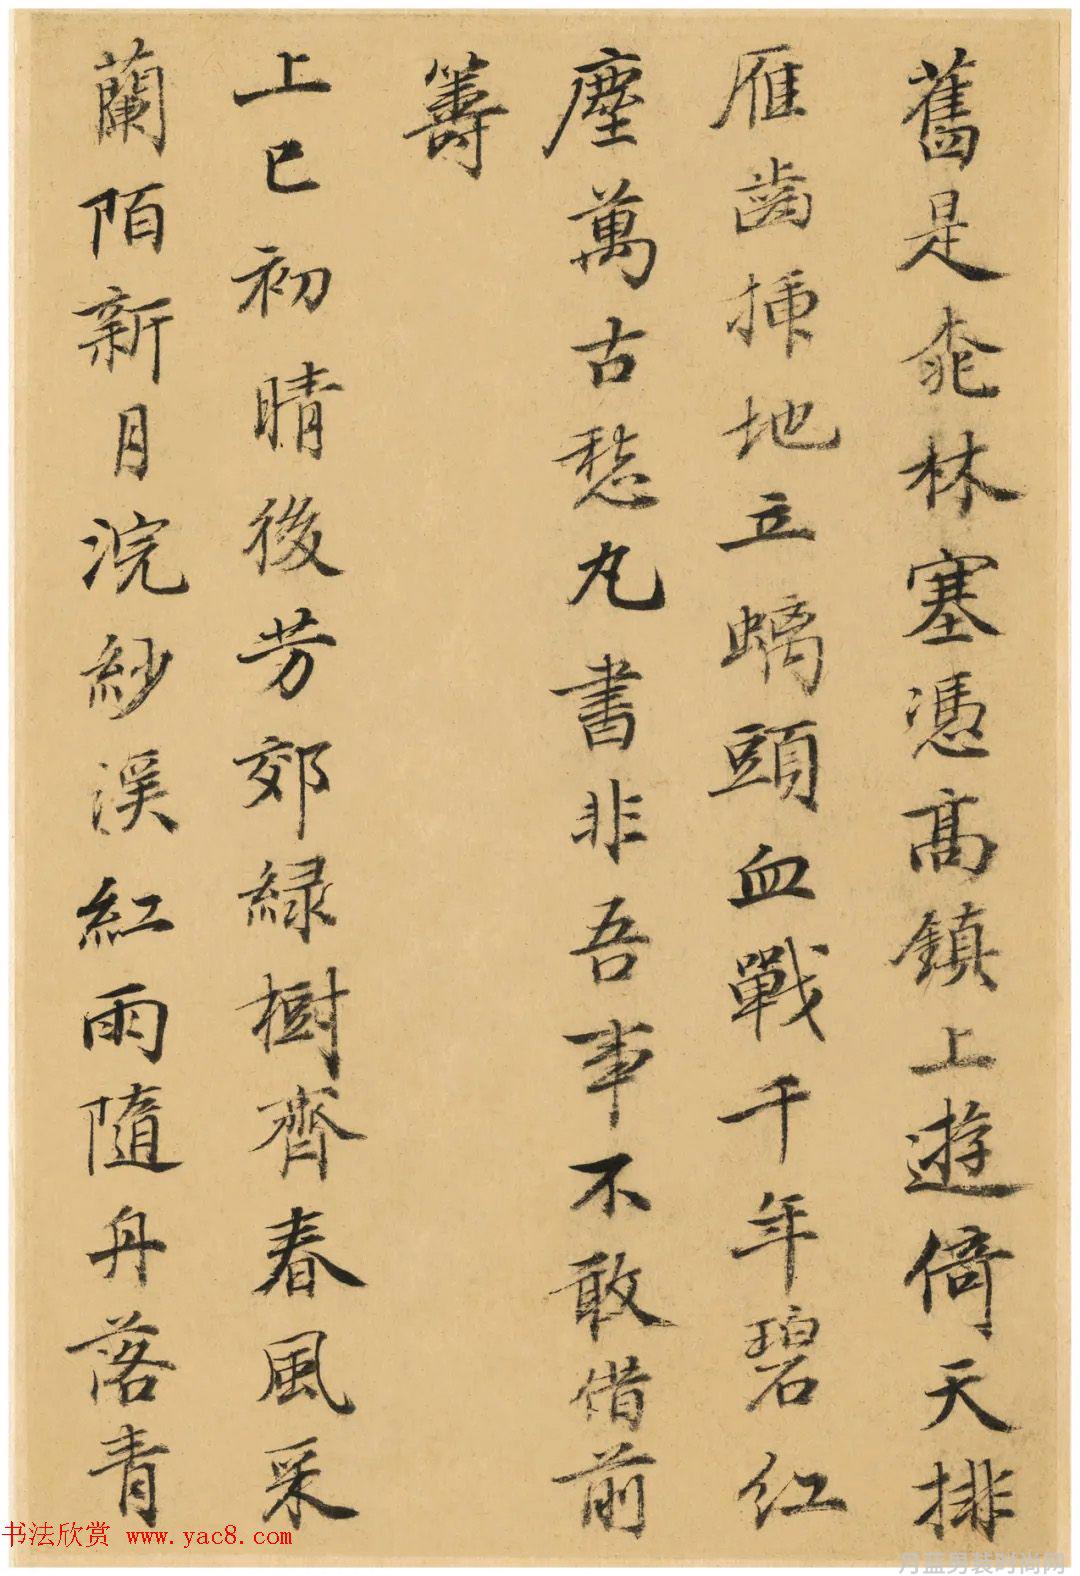 舊是桃林塞憑高鎮上遊倚天排
雁齒插地立螭頭血戰千年碧紅
塵萬古愁丸書非吾事不敢借前
籌
上巳初晴後芳郊緑樹齊春風采
蘭陌新月浣紗溪紅雨隨舟落青
书法欣赏 www.yac8.com
男装时尚网